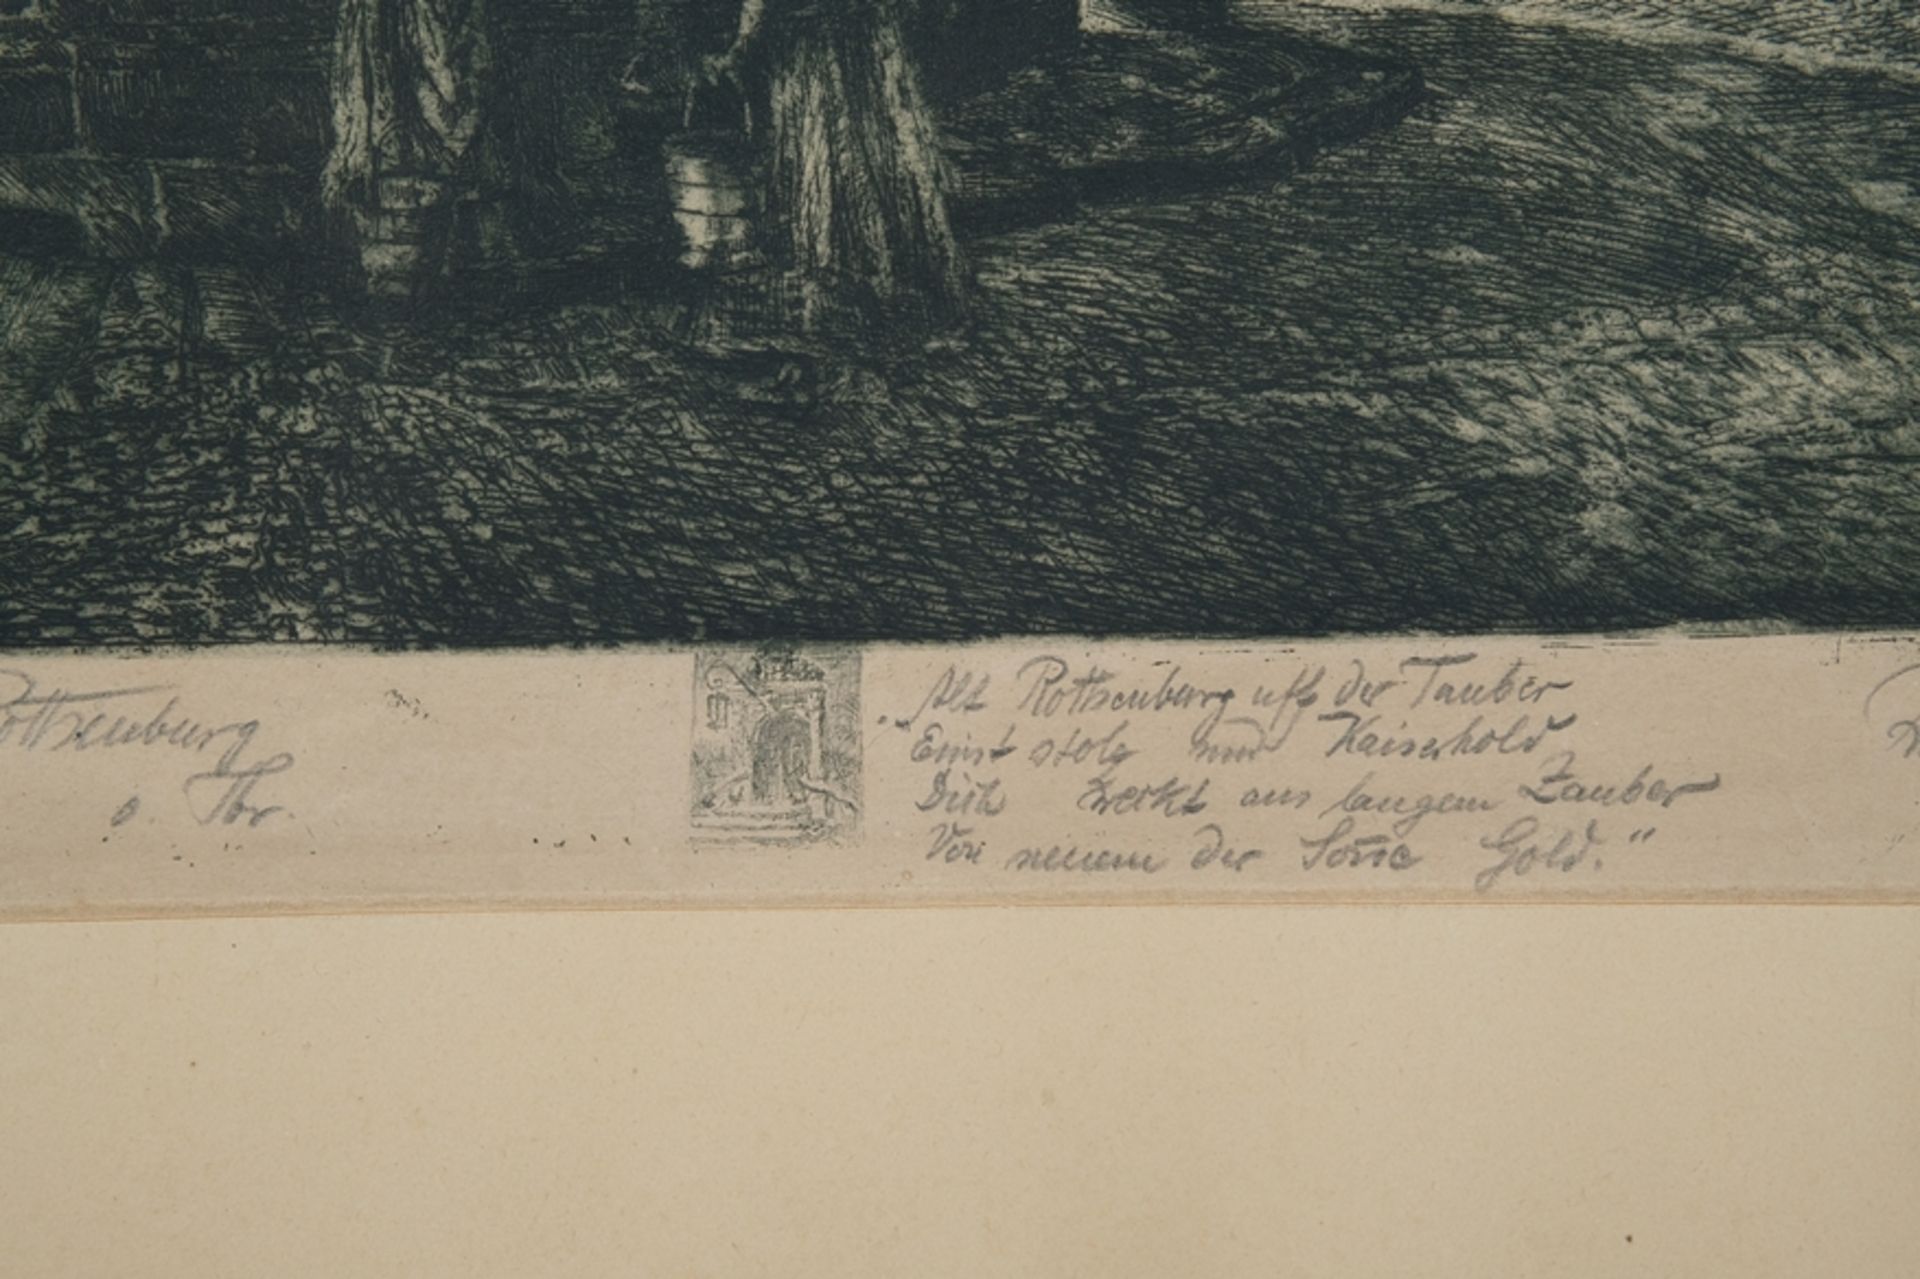 Rothenburg
o. Tbr.
„Alt Rothenburg uff der Tauber
Einst stolz und Kaiserhold
Dich weckt aus langem Zauber
Von neuem der Son̄e Gold.“